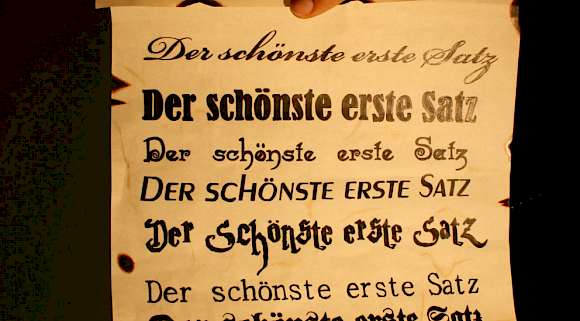 Der schönste erste Satz
Der schönste erste Satz
Der schönste erste Satz
Der schönste erste Satz
Der schönste erste Satz
Der schönste erste Satz
Der schönste erste Satz